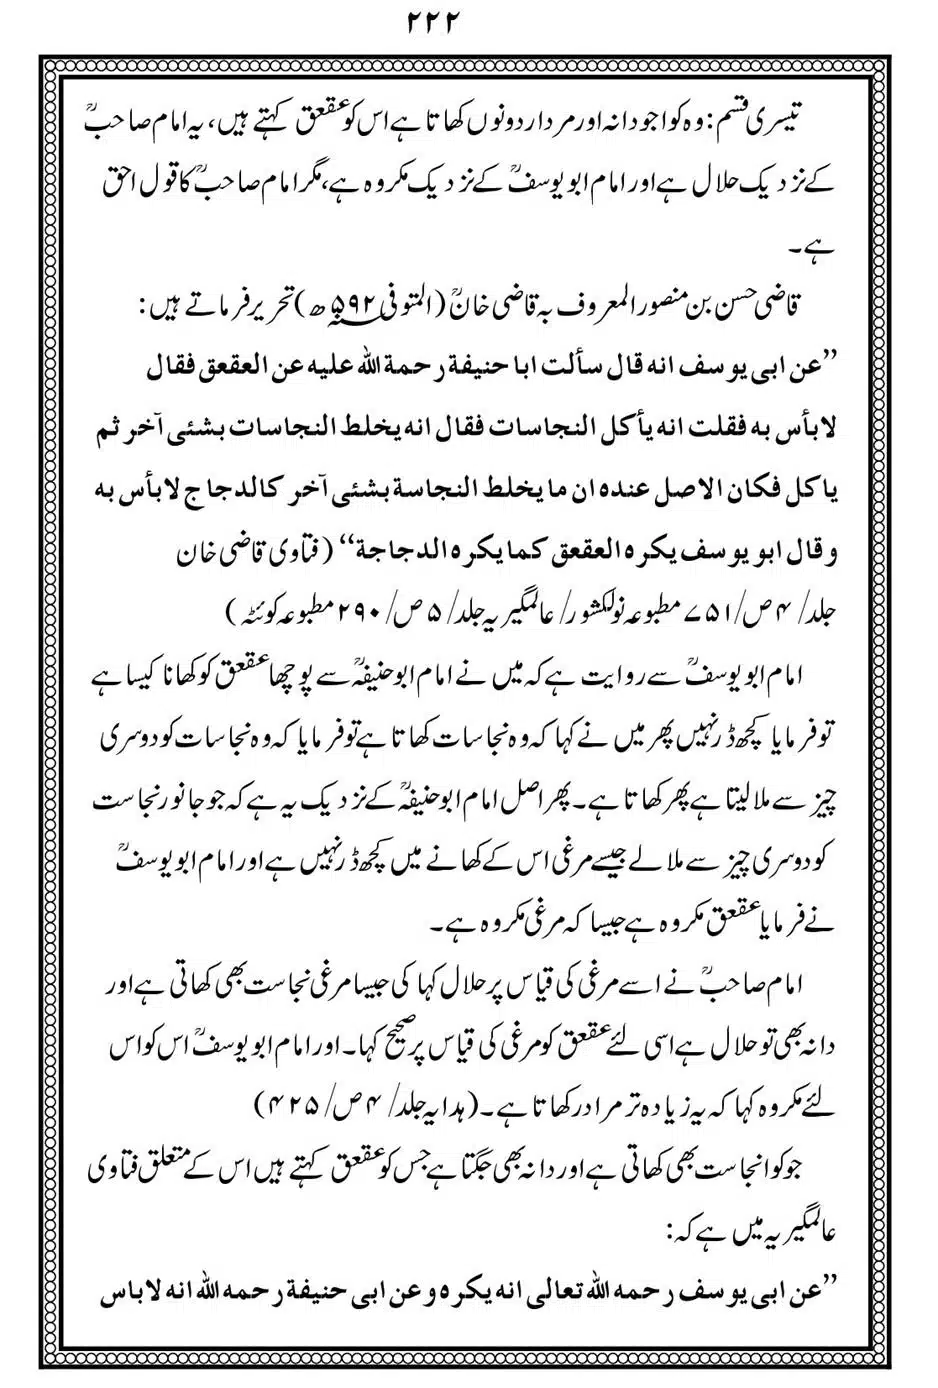 ۲۲۲
تیسری قسم: وہ کوا جو دانہ اور مردار دونوں کھاتا ہے اس کو عقعق کہتے ہیں، یہ امام صاحبؒ
کے نزدیک حلال ہے اور امام ابو یوسفؒ کے نزدیک مکروہ ہے، مگر امام صاحبؒ کا قول احق
ہے۔
قاضی حسن بن منصور المعروف بہ قاضی خانؒ (المتوفی ۵۹۲ھ) تحریر فرماتے ہیں:
’’عن ابی یوسف انه قال سألت ابا حنیفة رحمة الله علیه عن العقعق فقال
لا بأس به فقلت انه یأكل النجاسات فقال انه یخلط النجاسات بشئی آخر ثم
یاكل فكان الاصل عنده ان ما یخلط النجاسة بشئی آخر كالدجاج لا بأس به
و قال ابو یوسف یكره العقعق كما یكره الدجاجة‘‘ (فتاوی قاضی خان
جلد/ ۴ ص/ ۷۵۱ مطبوعہ نولکشور/ عالمگیریہ جلد/ ۵ ص/ ۲۹۰ مطبوعہ کوئٹہ)
امام ابو یوسفؒ سے روایت ہے کہ میں نے امام ابو حنیفہؒ سے پوچھا عقعق کو کھانا کیسا ہے
تو فرمایا کچھ ڈر نہیں پھر میں نے کہا کہ وہ نجاسات کھاتا ہے تو فرمایا کہ وہ نجاسات کو دوسری
چیز سے ملا لیتا ہے پھر کھاتا ہے۔ پھر اصل امام ابو حنیفہؒ کے نزدیک یہ ہے کہ جو جانور نجاست
کو دوسری چیز سے ملا لے جیسے مرغی اس کے کھانے میں کچھ ڈر نہیں ہے اور امام ابو یوسفؒ
نے فرمایا عقعق مکروہ ہے جیسا کہ مرغی مکروہ ہے۔
امام صاحبؒ نے اسے مرغی کی قیاس پر حلال کہا کی جیسا مرغی نجاست بھی کھاتی ہے اور
دانہ بھی تو حلال ہے اسی لئے عقعق کو مرغی کی قیاس پر صحیح کہا۔ اور امام ابو یوسفؒ اس کو اس
لئے مکروہ کہا کہ یہ زیادہ تر مرادر کھاتا ہے۔ (ہدایہ جلد/ ۴ ص/ ۴۲۵)
جو کوا نجاست بھی کھاتی ہے اور دانہ بھی جگتا ہے جس کو عقعق کہتے ہیں اس کے متعلق فتاوی
عالمگیریہ میں ہے کہ:
’’عن ابی یوسف رحمه الله تعالی انه یكره و عن ابی حنیفة رحمه الله انه لا باس